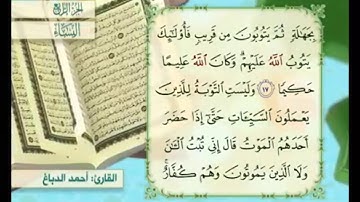 الجزء الرابع
النساء
بِجَهَٰلَةٍ ثُمَّ يَتُوبُونَ مِن قَرِيبٍ فَأُو۟لَٰٓئِكَ
يَتُوبُ ٱللَّهُ عَلَيْهِمْ ۗ وَكَانَ ٱللَّهُ عَلِيمًا
حَكِيمًا ١٧ وَلَيْسَتِ ٱلتَّوْبَةُ لِلَّذِينَ
يَعْمَلُونَ ٱلسَّيِّـَٔاتِ حَتَّىٰٓ إِذَا حَضَرَ
أَحَدَهُمُ ٱلْمَوْتُ قَالَ إِنِّى تُبْتُ ٱلْـَٰٔنَ
وَلَا ٱلَّذِينَ يَمُوتُونَ وَهُمْ كُفَّارٌ ۚ
القارئ: أحمد الدباغ